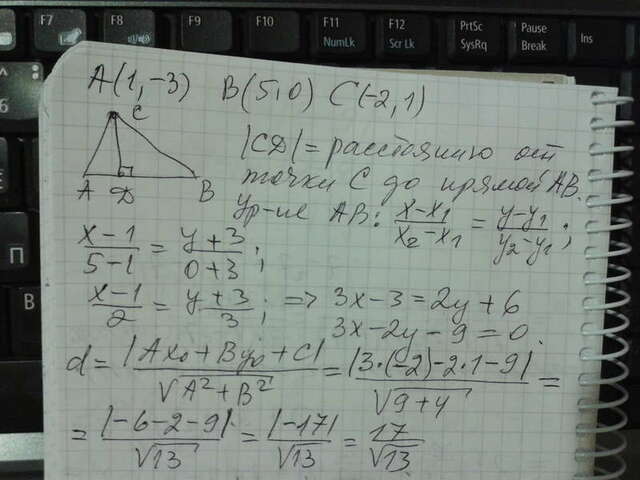 F7 F8 F9 F10 F11 F12 PrtSc Pause
NumLk Scr Lk SysRq Break Ins
6
П
В
A(1,-3) B(5,0) C(-2,1)
C
A D B
|CD| = расстоянию от
точки C до прямой AB.
Ур-ие AB: (x-x₁)/(x₂-x₁) = (y-y₁)/(y₂-y₁);
(x-1)/(5-1) = (y+3)/(0+3);
(x-1)/2 = (y+3)/3; => 3x-3=2y+6
3x-2y-9=0.
d = |Ax₀+By₀+C|/√(A²+B²) = |3·(-2)-2·1-9|/√(9+4) =
= |-6-2-9|/√13 = |-17|/√13 = 17/√13